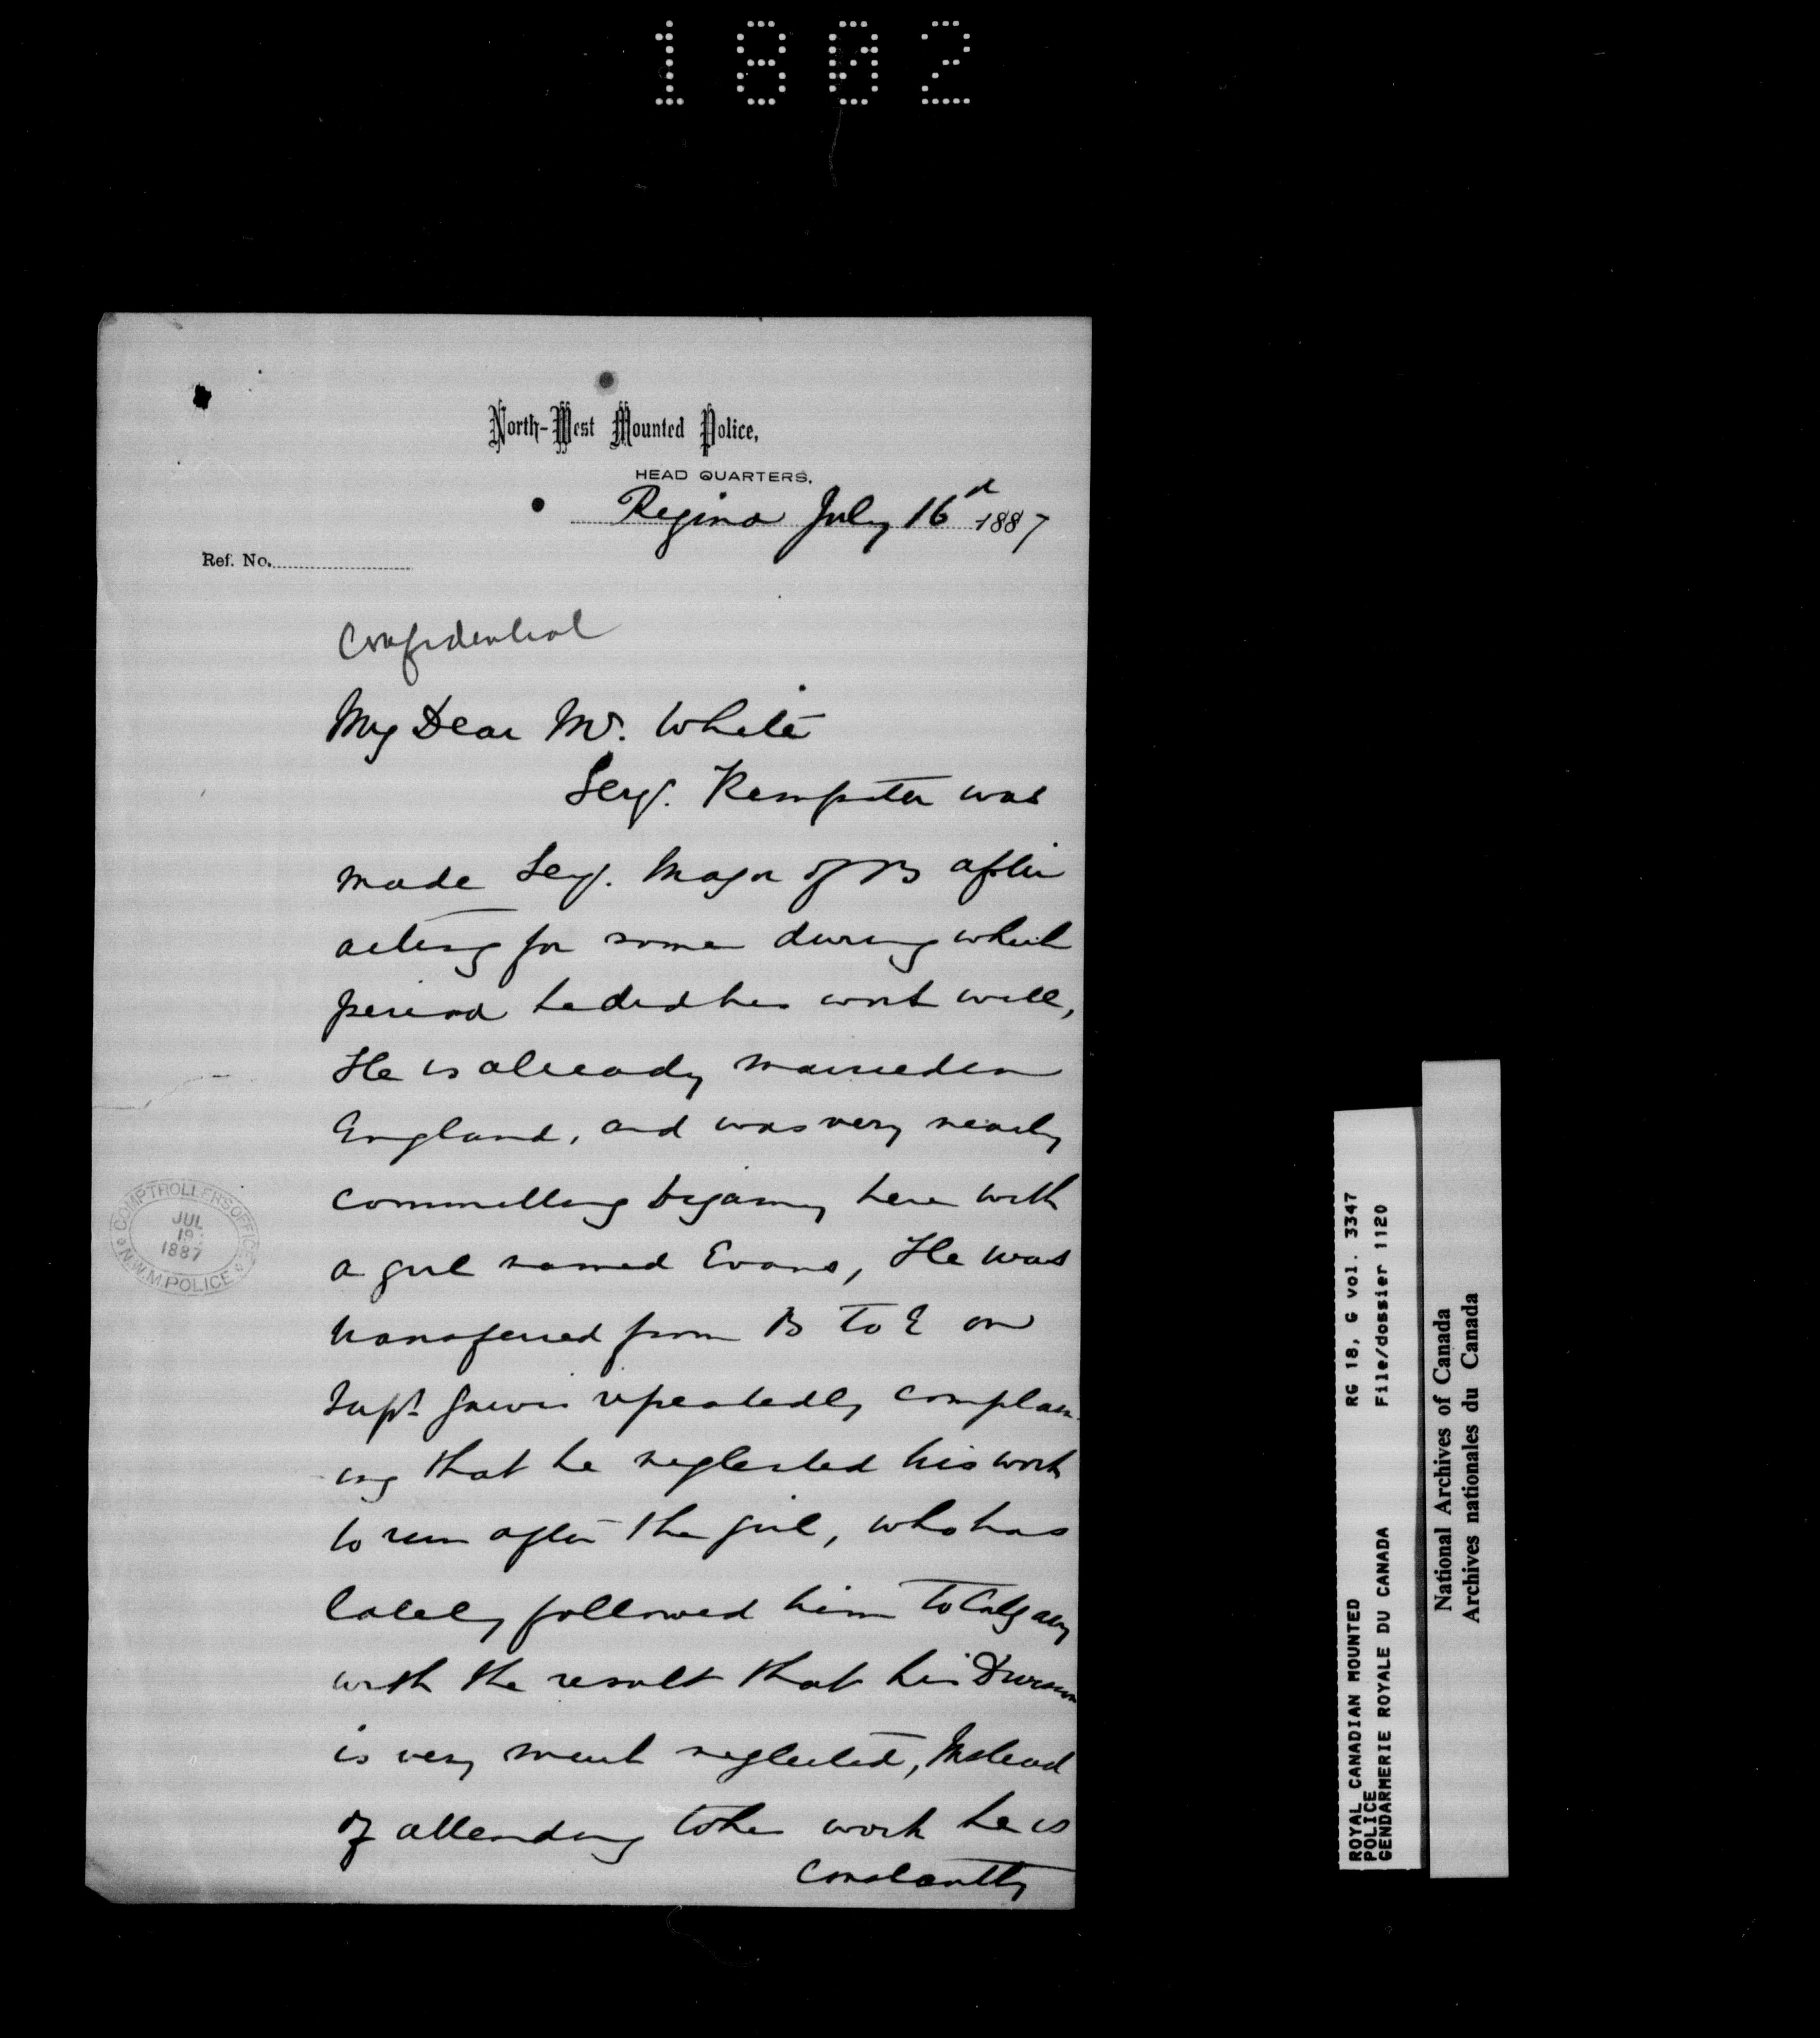 1802
North-West Mounted Police,
HEAD QUARTERS,
Regina July 16 1887
Ref. No.
Confidential
My Dear Mr. White
Sergt. Kempster was
made Sergt. Major of B after
acting for some during which
period he did his work well,
He is already married in
England, and was very nearly
committing bigamy here with
a girl named Evans, He was
transferred from B to E on
Supt Jarvis repeatedly complain
ing that he neglected his work
to run after the girl, who has
lately followed him to Calgary
with the result that his Division
is very much neglected, Instead
of attending to his work he is
constantly
COMPTROLLERS OFFICE
JUL
19
1887
N.W.M.POLICE
ROYAL CANADIAN MOUNTED RG 18, G vol. 3347
POLICE
GENDARMERIE ROYALE DU CANADA File/dossier 1120
National Archives of Canada
Archives nationales du Canada